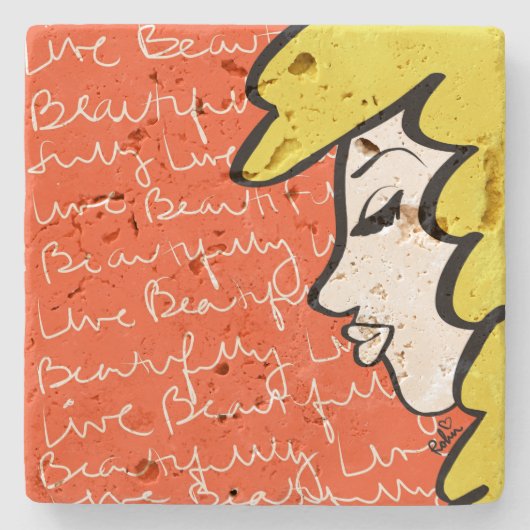 Live Beautifu
Beautifully
fully Live B
Live Beautifu
Beautifully Li
Live Beautifully
Beautifully Liv
Live Beautifully
Beautifully Liv
Live Beautifully
Robin